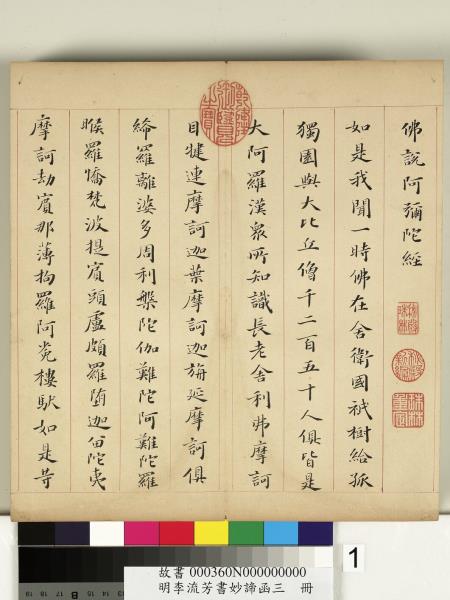 佛說阿彌陀經
如是我聞一時佛在舍衛國祇樹給孤
獨園與大比丘僧千二百五十人俱皆是
大阿羅漢衆所知識長老舍利弗摩訶
目犍連摩訶迦葉摩訶迦旃延摩訶俱
絺羅離婆多周利槃陀伽難陀阿難陀羅
睺羅憍梵波提賓頭盧頗羅墮迦留陀夷
摩訶劫賓那薄拘羅阿㝹樓馱如是等
乾隆御覽之寶
1
故書 000360N000000000
明李流芳書妙諦函三 冊